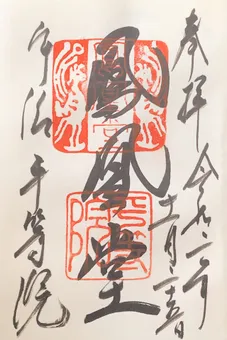 奉拝
令和二年
十一月二十五日
鳳凰堂
宇治 平等院